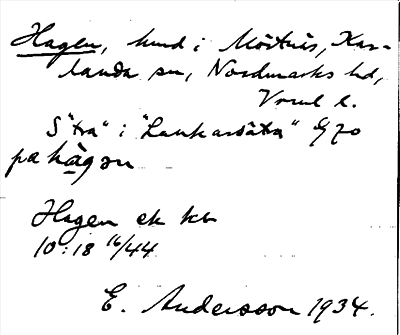 Hagen, hmd i Möstnäs, Kar-
landa sn, Nordmarks hd,
Vrml l.
S "tra" i "Lankasätra"
pa hàgən
Hagen ek kb
10:18 16/44
E. Andersson 1934.